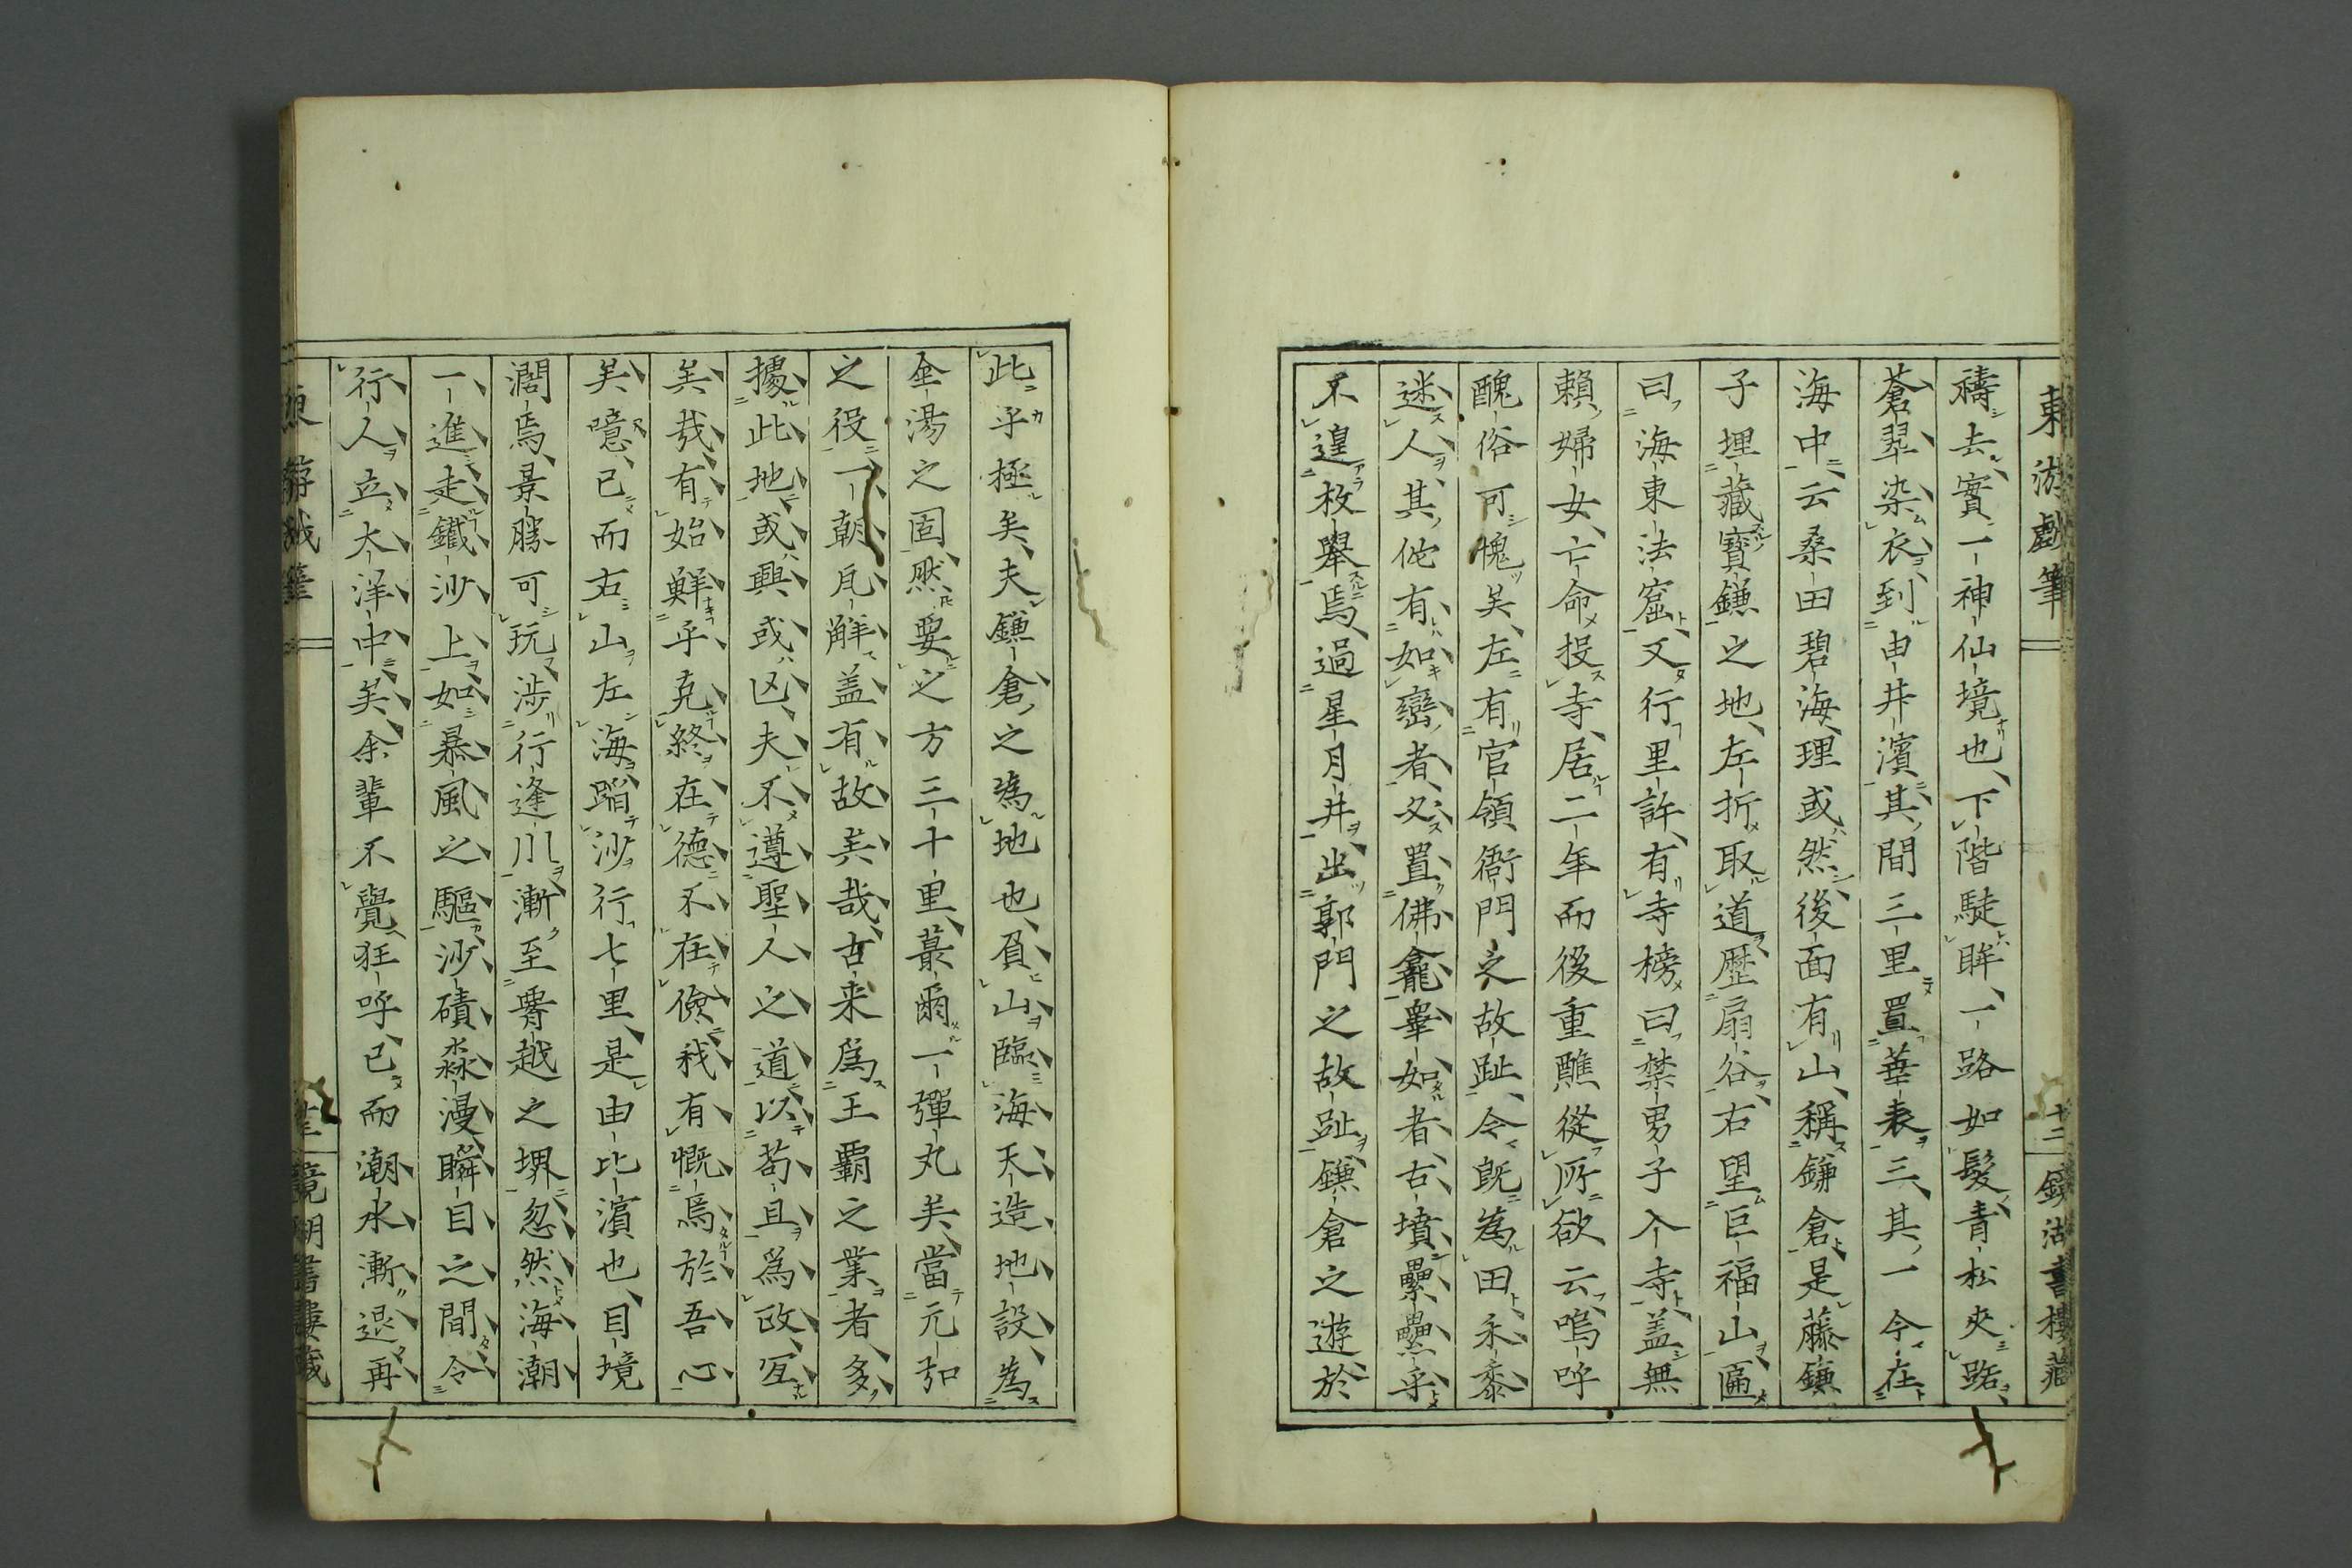 東游戯筆 十二 鏡湖書樓藏
禱去、實一神仙境也、下階騁眸、一路如髮、青松夾路、
蒼翠染衣、到由井濱、其間三里、置華表三、其一今在
海中、云桑田碧海、理或然、後面有山、稱鎌倉、是藤鎌
子埋藏寶鎌之地、左折取道、歴扇谷、右望巨福山、匾
曰海東法窟、又行里許、有寺榜曰禁男子入寺、盖無
賴婦女、亡命投寺、居二年而後重醮從所欲云、嗚呼
醜俗可愧矣、左有官領衙門之故趾、今既為田禾黍
迷人、其佗有如巒者、又置佛龕、睾如者、古墳纍壘乎
不遑枚舉焉、過星月井、出郭門之故趾、鎌倉之遊於
此乎極矣、夫鎌倉之為地也、負山臨海、天造地設、為
金湯之固、然要之方三十里、蕞爾一彈丸矣、當元弘
之役、一朝瓦解、盖有故矣哉、古来爲王覇之業者、多
據此地、或興或凶、夫不遵聖人之道、以苟且爲政、宜
矣哉、有始鮮乎克終、在德不在儉、我有慨焉於吾心
矣、噫、已而右山左海、蹈沙行七里、是由比濱也、目境
濶焉、景勝可玩、渉行逢川、漸至霽越之堺、忽然海潮
一進、走鐵沙上、如暴風之驅沙磧、淼漫瞬目之間、令
行人立大洋中矣、余輩不覺狂呼、已而潮水漸退、再
東游戯筆 鏡湖書樓藏